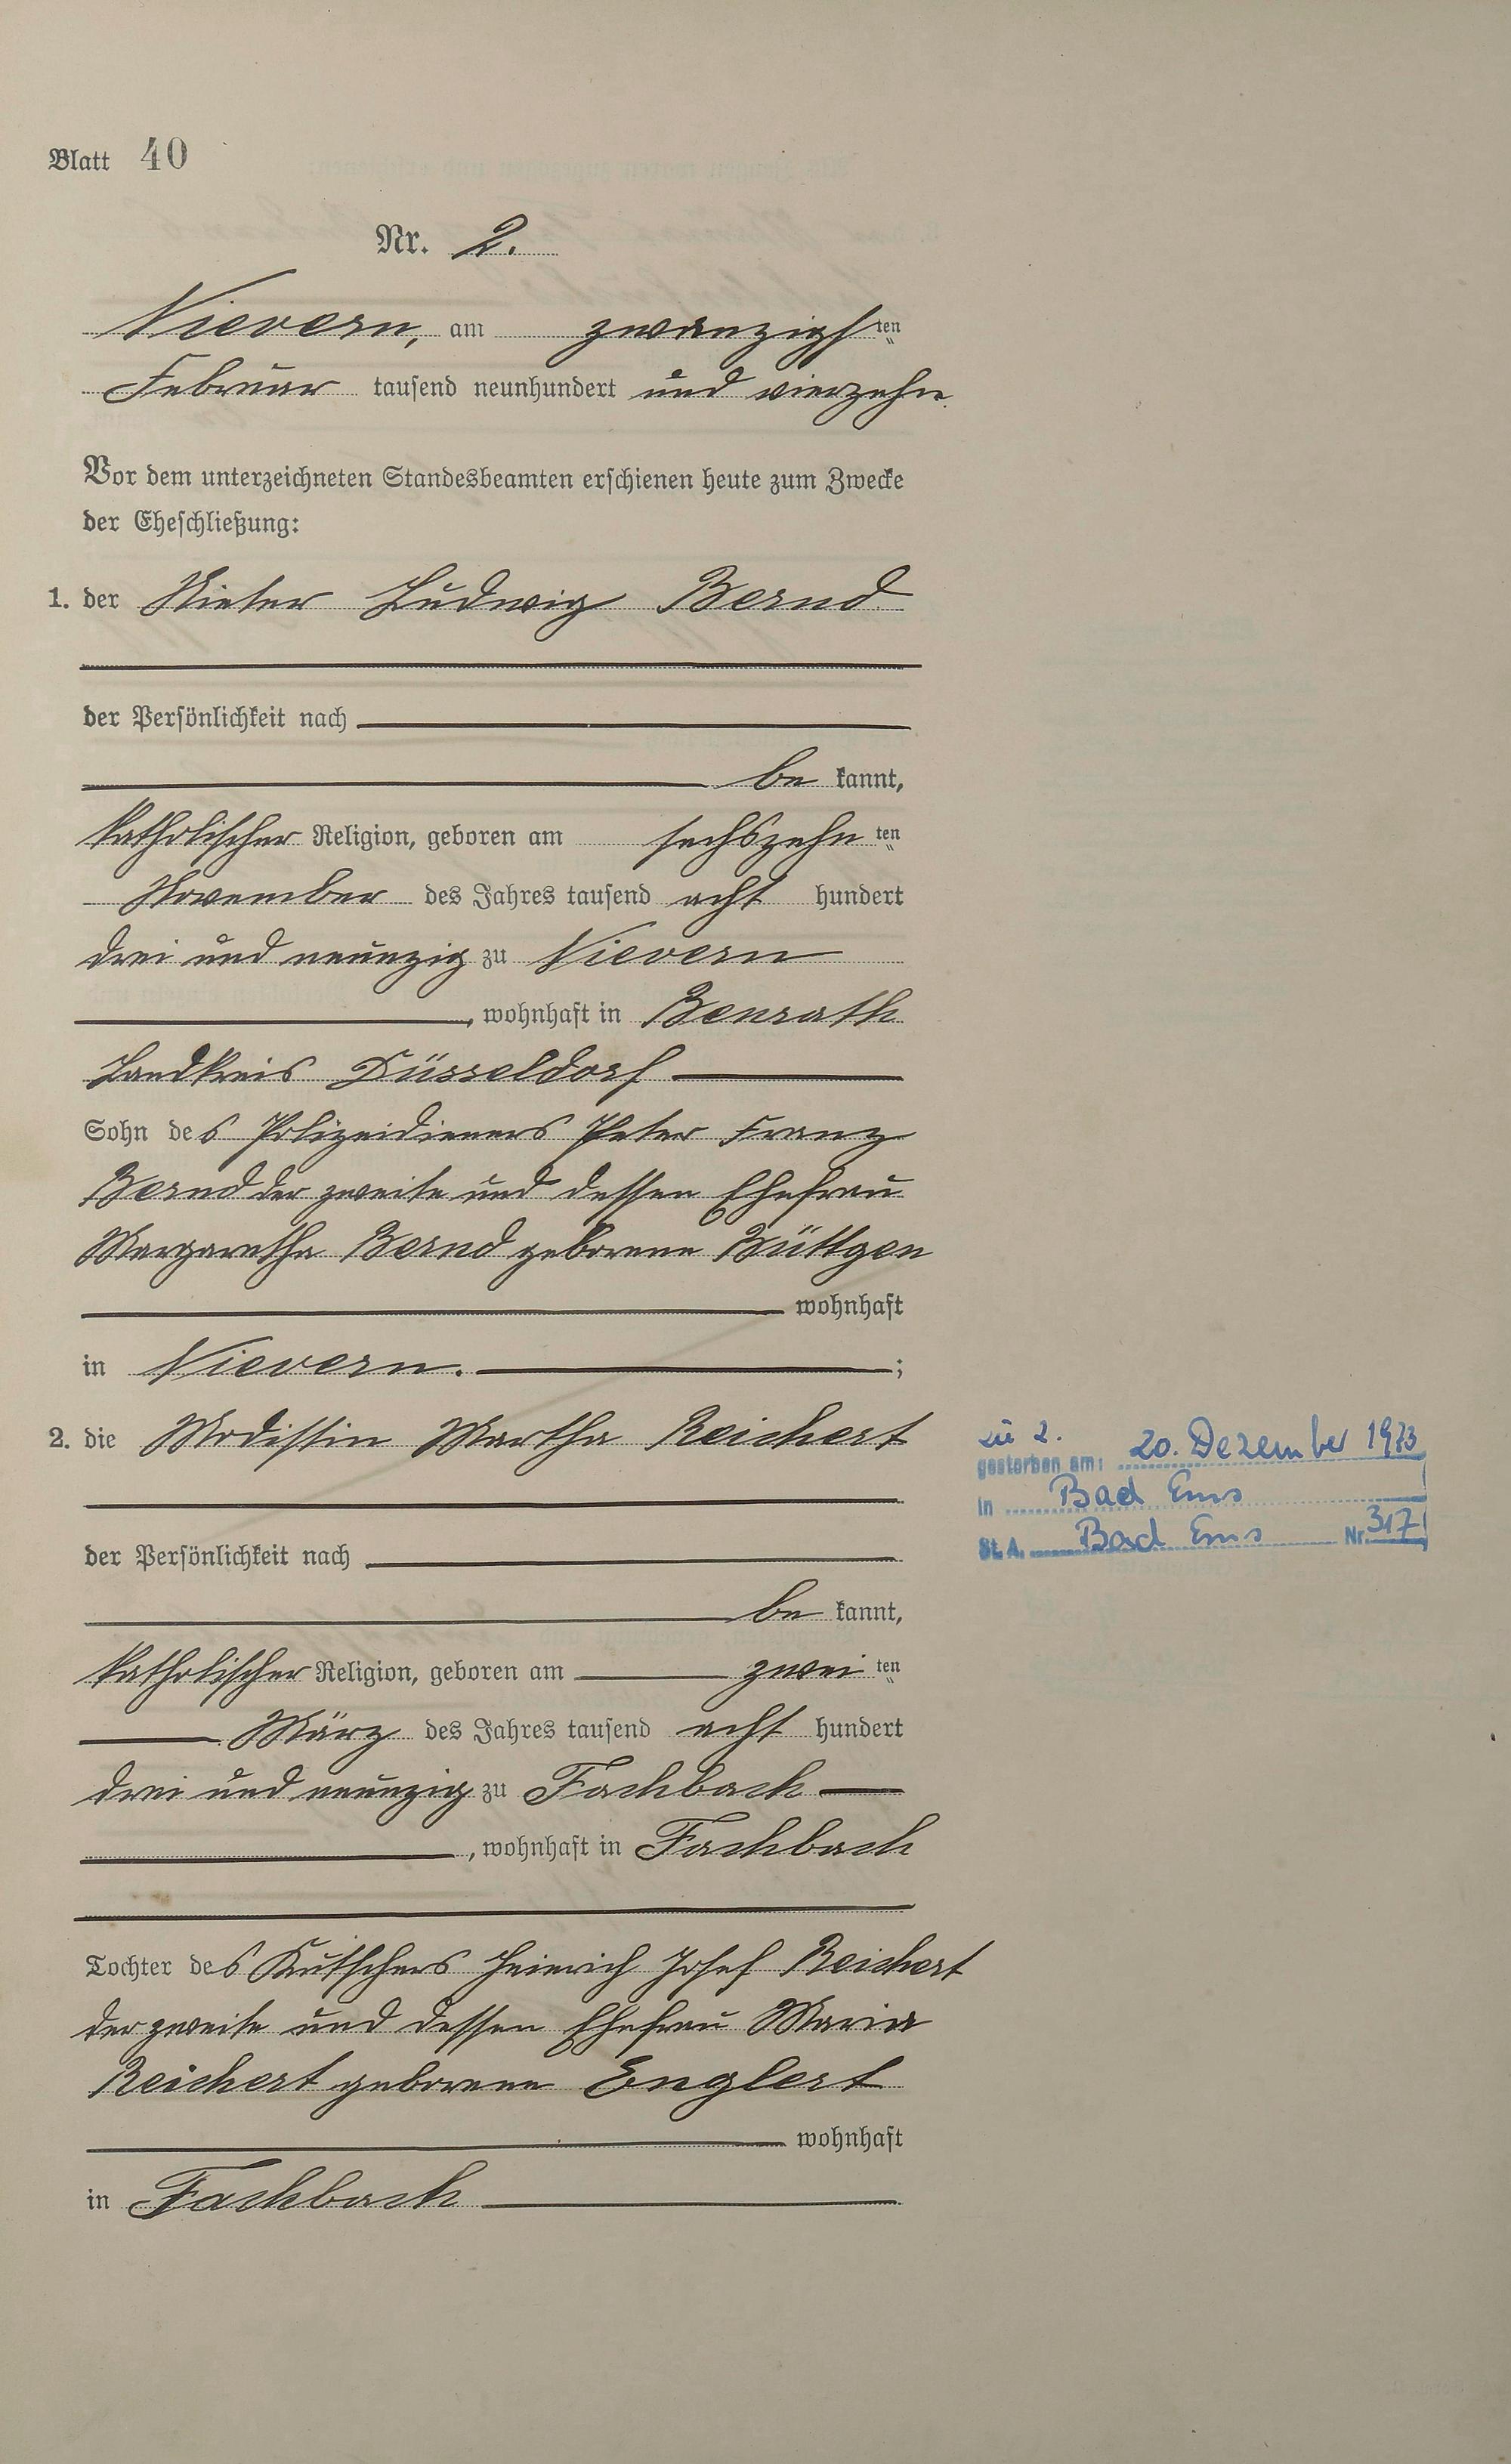 Blatt 40
Nr. 2.
Nievern, am zwanzigsten
Februar tausend neunhundert und vierzehn.
Vor dem unterzeichneten Standesbeamten erschienen heute zum Zwecke
der Eheschließung:
1. der Nieter Ludwig Bernd
der Persönlichkeit nach
be kannt,
katholischer Religion, geboren am sechszehn ten
November des Jahres tausend acht hundert
drei und neunzig zu Nievern
, wohnhaft in Benrath
Landkreis Düsseldorf
Sohn des Polizeidieners Peter Franz
Bernd der zweite und dessen Ehefrau
Margaretha Bernd geborene Büttgen
wohnhaft
in Nievern. ;
2. die Modistin Martha Reichert
der Persönlichkeit nach
be kannt,
katholischer Religion, geboren am zwei ten
März des Jahres tausend acht hundert
drei und neunzig zu Fachbach
, wohnhaft in Fachbach
Tochter des Kutschers Heinrich Josef Reichert
der zweite und dessen Ehefrau Maria
Reichert geborene Englert
wohnhaft
in Fachbach
zu 2.
gestorben am: 20. Dezember 1973
in Bad Ems
St. A. Bad Ems Nr. 317